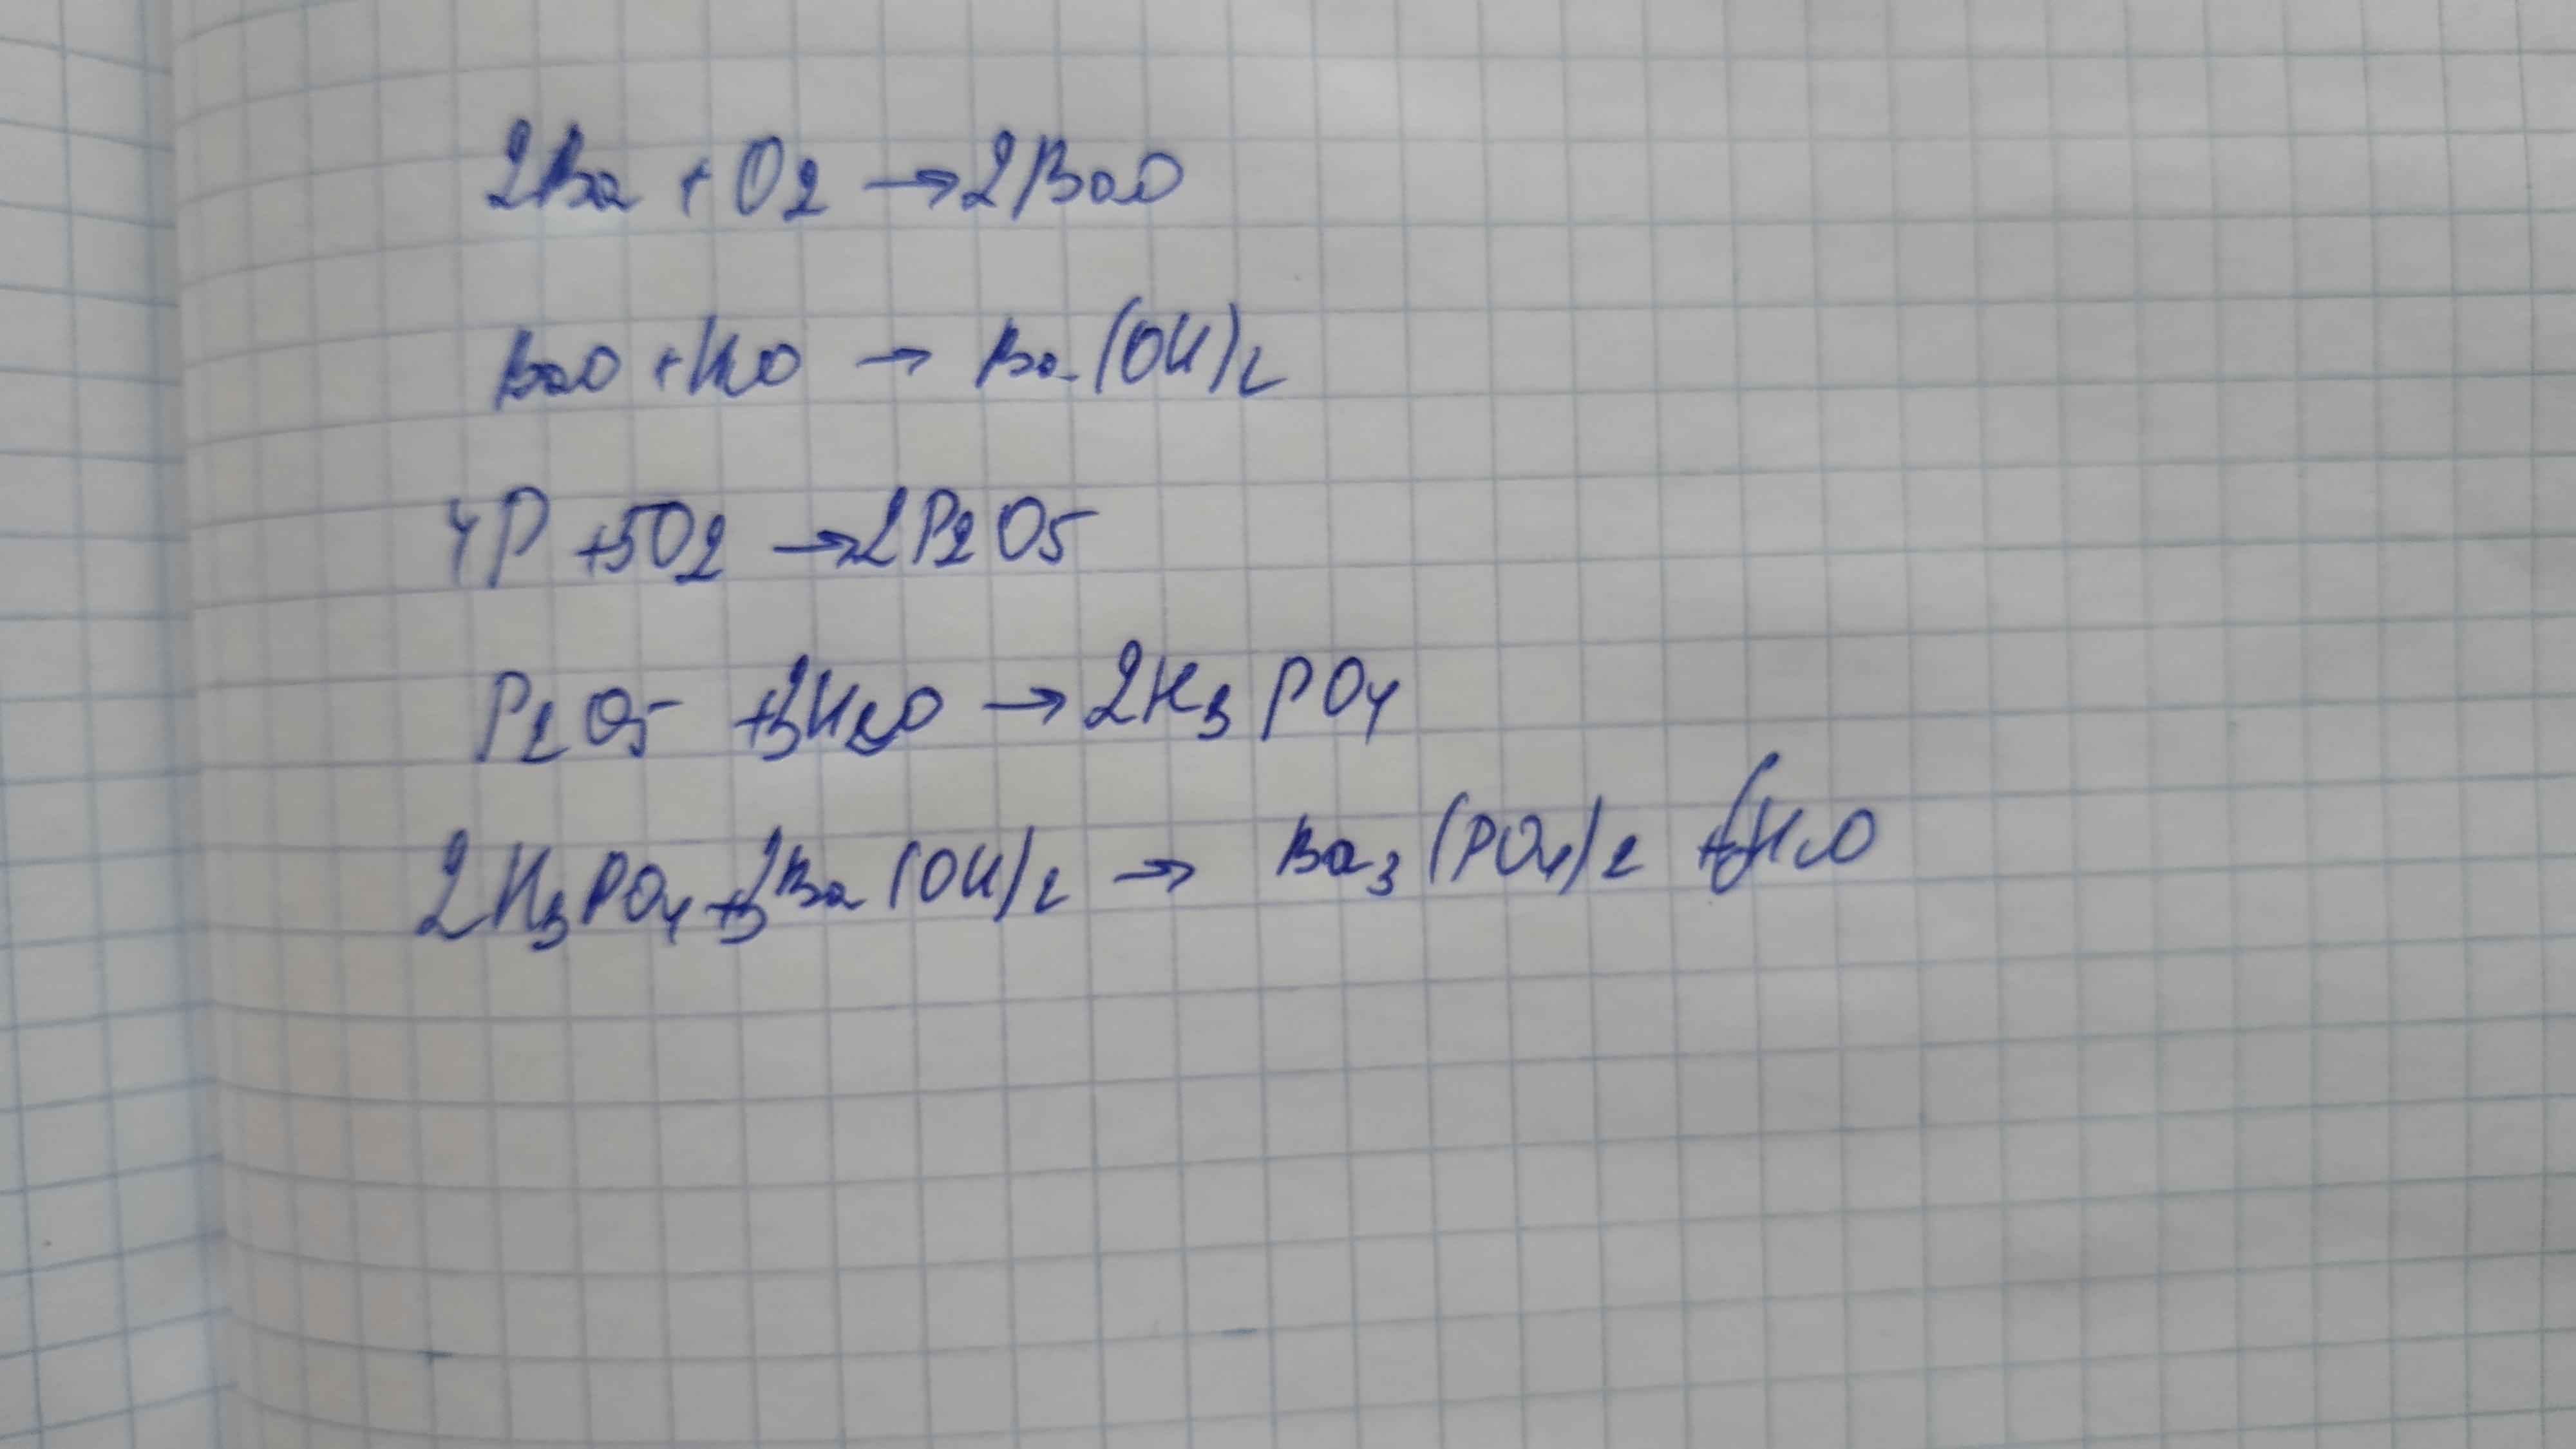 2Ba + O2 → 2BaO
BaO + H2O → Ba(OH)2
4P + 5O2 → 2P2O5
P2O5 + 3H2O → 2H3PO4
2H3PO4 + 3Ba(OH)2 → Ba3(PO4)2 + 6H2O